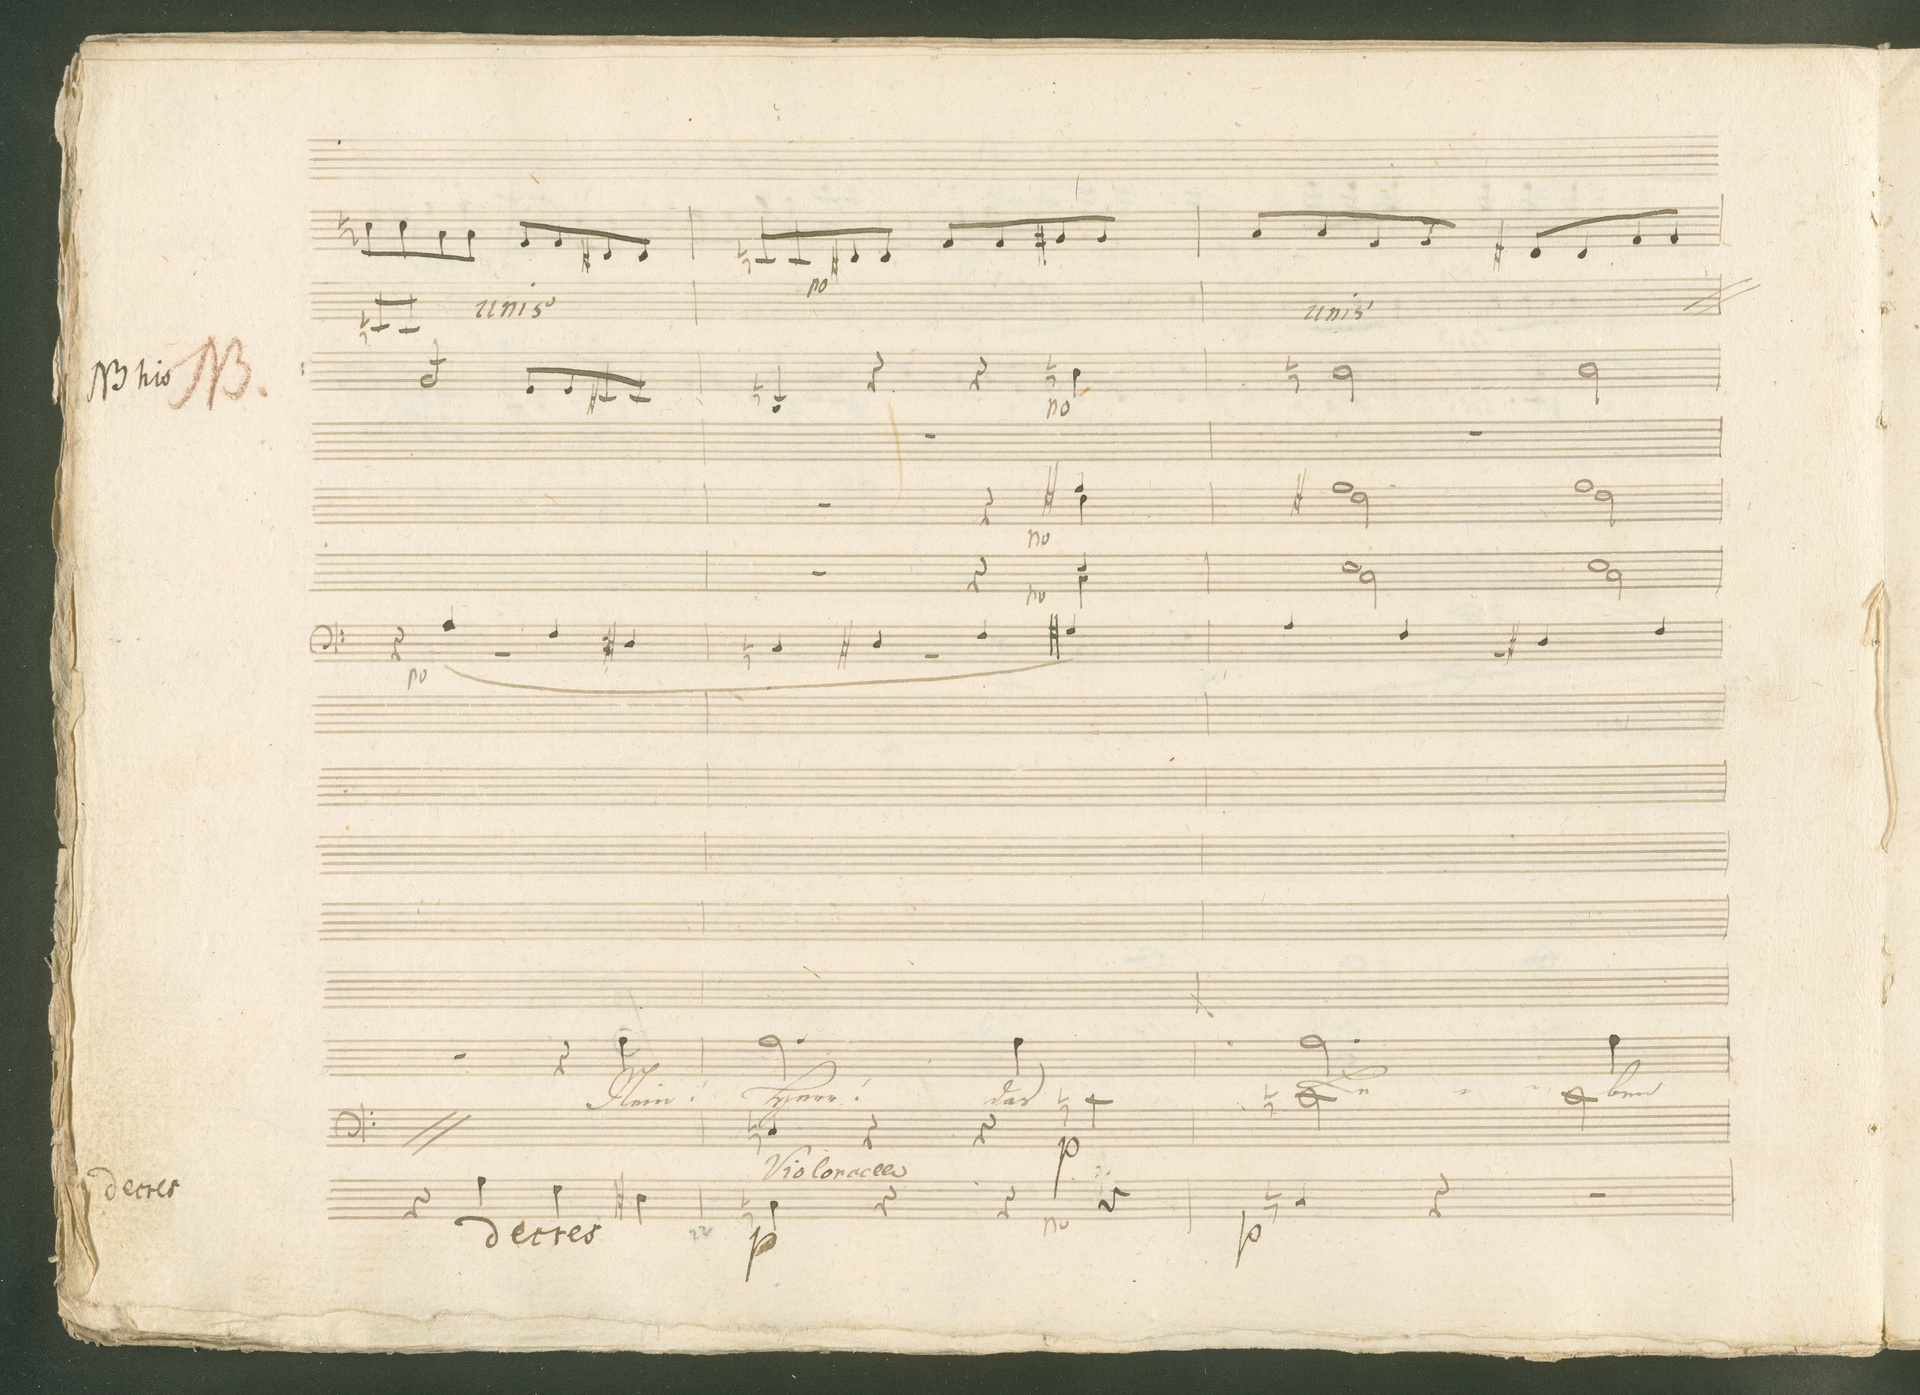 po
unis unis
NB hio NB.
po
po
po
po
Nein! Herr! das Le - - ben
p
Violoncello
decres
decres p po p